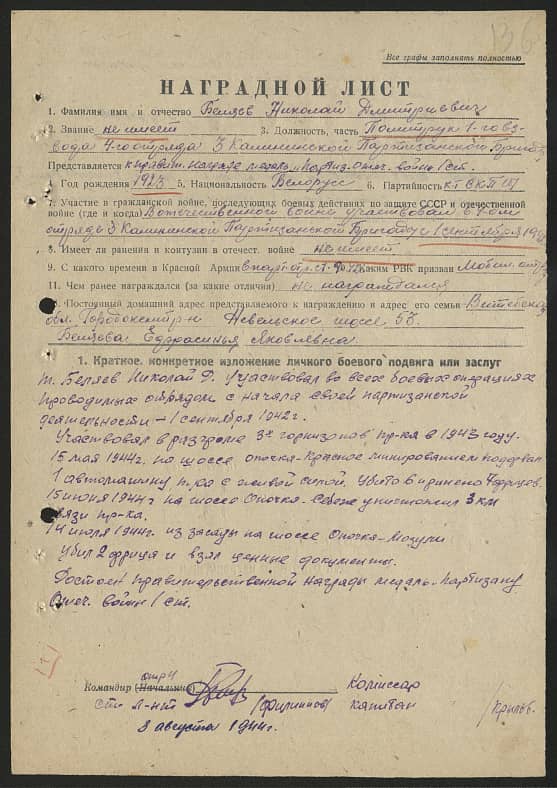 136
Все графы заполнять полностью
НАГРАДНОЙ ЛИСТ
1. Фамилия имя и отчество Беляев Николай Дмитриевич
2. Звание не имеет 3. Должность, часть Политрук 1-го вз-
вода 4-го отряда 3 Калининской Партизанской Бриг.
Представляется к правит. награде медаль "Партиз. Отеч. войны 1 ст.
4. Год рождения 1923 5. Национальность Белорусс 6. Партийность к-т ВКП(б)
7. Участие в гражданской войне, последующих боевых действиях по защите СССР и отечественной
войне (где и когда) В отечественной войне участвовал в 4-ом
отряде 3 Калининской Партизанской Бригаде с 1 сентября 194
8. Имеет ли ранения и контузии в отечест. войне не имеет
9. С какого времени в Красной Армии в парт. отр. с Каким РВК призван
11. Чем ранее награждался (за какие отличия) не награждался
Постоянный домашний адрес представляемого к награждению и адрес его семьи Витебская
обл. Городокский р-н Невельское шоссе 57.
Беляева Ефрасинья Яковлевна
1. Краткое, конкретное изложение личного боевого подвига или заслуг
т. Беляев Николай Д. Участвовал во всех боевых операциях
проводимых отрядом с начала своей партизанской
деятельности – 1 сентября 1942 г.
Участвовал в разгроме 3х гарнизонов пр-ка в 1943 году.
15 мая 1944 г. на шоссе Опочка-Красное минированием подорвал
1 автомашину пр-ка с живой силой. Убито 6 и ранено 4 фрицев.
15 июня 1944 г на шоссе Опочка-Себеж уничтожил 3 км
связи пр-ка.
14 июля 1944 г. из засады на шоссе Опочка-Мозули
убил 2 фрица и взял ценные документы.
Достоен правительственной награды медаль "Партизану
Отеч. войны 1 ст.
отр
Командир (Начальник)
Комиссар
ст. л-нт (Филиппов) капитан /Крильв.
8 августа 1944 г.